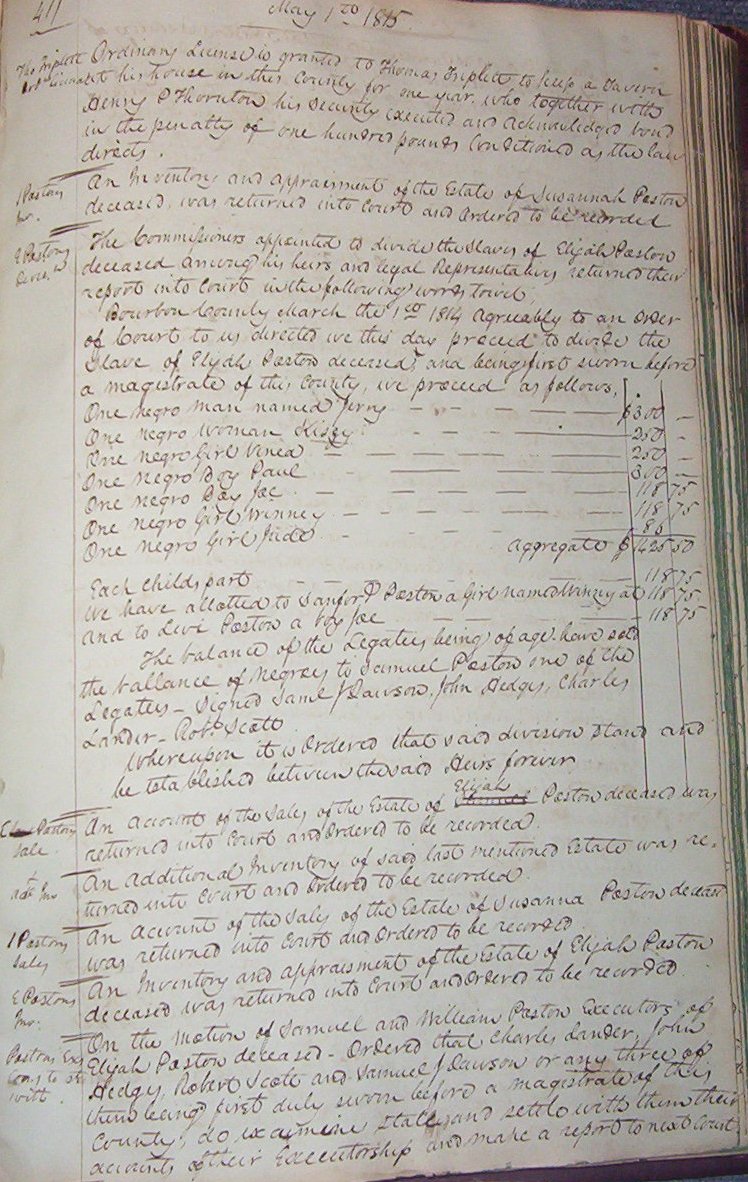 411
May 1st 1815.
Tho Triplett Ordinary License is granted to Thomas Triplett to keep a Tavern
at his house in this County for one year, who together with
Henry P Thornton his security executed and acknowledged bond
in the penalty of one hundred pounds Conditioned as the law
directs.
An Inventory and appraisment of the Estate of Susannah Paston
Inv. deceased, was returned into Court and Ordered to be recorded
E Pastons The Commissioners appointed to divide the Slaves of Elijah Paston
deceased among his heirs and legal Representatives returned their
report into Court in the following words towit,
Bourbon County March the 1st 1814 Agreeably to an Order
of Court to us directed we this day proceed to divide the
Slave of Elijah Paston deceased, and being first sworn before
a magistrate of this County, we proceed as follows,
One negro man named Jerry $300 —
One negro Woman Kissy 250 —
One negro Girl Vinea 250 —
One negro Boy Paul 300 —
One negro Boy Joe 118 75
One negro Girl Winney 118 75
One negro Girl Jude
Aggregate $ 1425 50
Each childs part 118 75
We have allotted to Sanford Paston a Girl named Winny at 118 75
and to Levi Paston a boy Joe 118 75
The balance of the Legatees being of age have sold
the ballance of Negroes to Samuel Paston one of the
Legatees – Signed Saml J Dawson, John Hedges, Charles
Lander – Robt Scott
Whereupon it is Ordered that said division stand and
be established between the said Heirs forever
Elijah
Pastons An account of the Sales of the Estate of Paston deceased was
Sale returned into Court and Ordered to be recorded.
An Additional Inventory of said last mentioned Estate was re-
turned into Court and Ordered to be recorded.
Pastons An Account of the Sales of the Estate of Susanna Paston deceased
Sales was returned into Court and Ordered to be recorded
E Pastons An Inventory and appraisment of the Estate of Elijah Paston
Inv: deceased was returned into Court and Ordered to be recorded.
On the motion of Samuel and William Paston Executors of
Pastons Exs Elijah Paston deceased – Ordered that Charles Lander, John
Hedges, Robert Scott and Samuel J Dawson or any three of
with them being first duly sworn before a magistrate of this
County, do examine state and settle with them their
accounts of their Executorship and make a report to next Court